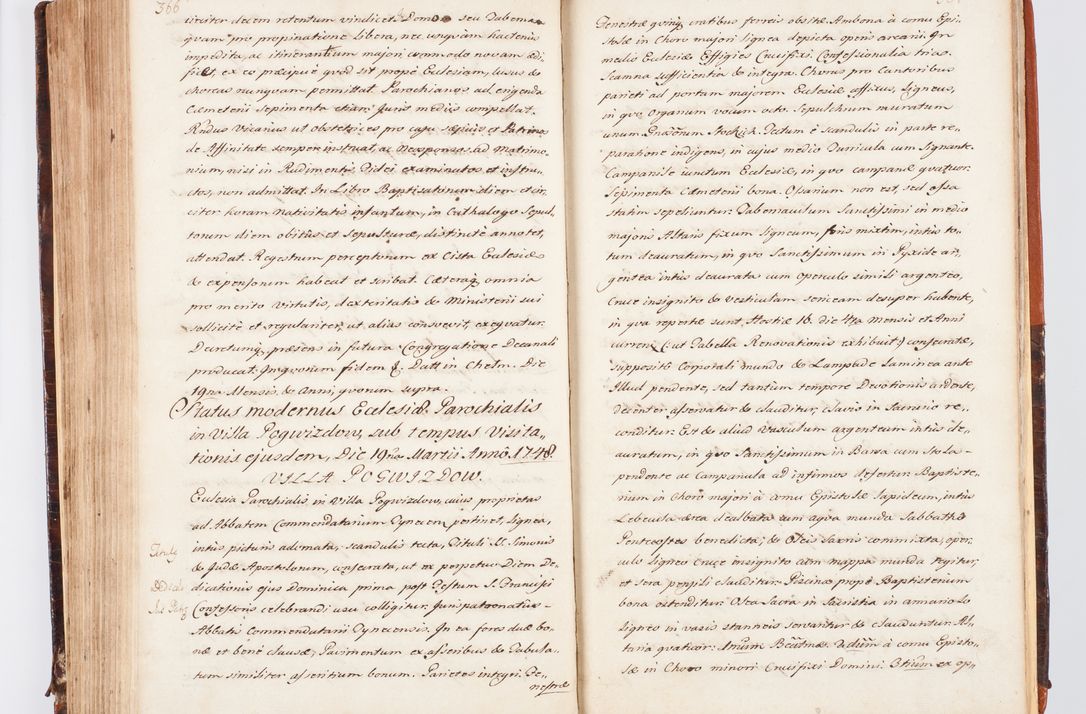 366
citeriter decem retentum vindicet. Domo seu Taberna
quam pro propinatione libera, nec unquam hactenus
impedita, ac itinerantium majori commodo novam ædi,,
ficet, ex eo præcipuè quod sit propè Ecclesiam, lusus &
choreas nunquam permittat. Parochianos ad erigenda
Cæmeterii Sepimenta etiam Juris mediis compellat.
Rudus Vicarius ut obstetrices pro casu sæpius et Patrinos
de Affinitate semper instruat, ac Neosponsos ad Matrimo-
nium, nisi in Rudimentis Fidei examinatos et instru,,
ctos, non admittat. In Libro Baptisatorum diem et cir,
citer horam nativitatis infantum, in Cathalogo Sepul,,
torum diem obitûs et sepulturæ, distinctè annotet,
attendat. Regestrum perceptorum ex Cista Ecclesiæ
& expensorum habeat et scribat. Cæteraq, omnia
pro merito virtutis, dexteritatis & Ministerii sui
sollicitè et regulariter, ut alias consvevit, exequatur.
Decretumq, præsens in futura Congregatione Decanali
producat. In quorum fidem &. Datt in Chelm. Die
19na Mensis & Anni, quorum supra.
Status modernus Ecclesiæ Parochialis
in Villa Pogwizdow, sub tempus Visita,,
tionis ejusdem, Die 19na Martii Anno 1748.
VILLA POGWIZDOW.
Ecclesia Parochialis in Villa Pogwizdow, cuius proprietas
ad Abbatem Commendatarium Tynecem pertinet, lignea,
intus picturis adornata, scandulis tecta, Tituli SS. Simonis
Titulq
& Judæ Apostolorum, consecrata, ut ex perpetuo Diem De,
Dedicао
dicationis ejus Dominica prima post Festum S. Francisci
Jus Patrq
Confessoris celebrandi usu colligitur. Juris patronatus -
Abbatis Commendatarii Tynecensis. In ea fores duæ bo,
næ et benè clausæ, Pavimentum ex asseribus & Tabula,,
tum similiter asseritium bonum. Parietes integri. Fe,,
nestræ
Fenestræ quinq, cratibus ferreis obsitæ. Ambona à cornu Epi,
stolæ in Choro majori lignea depicta operis arcarii. In
medio Ecclesiæ Effigies Crucifixi. Confessionalia tria.
Scamna sufficientia & integra. Chorus pro Cantoribus
parieti ad portam majorem Ecclesiæ affixus, ligneus,
in quo organum vocum octo. Sepulchrum muratum
unum. Tectum è scandulis in parte re,
paratione indigens, in cujus medio Turricula cum Signante.
Campanile junctum Ecclesiæ, in quo campanæ quatuor.
Sepimenta Cæmeterii bona. Ossarium non est, sed ossa
statim sepeliuntur. Tabernaculum Sanctissimi in medio
majoris Altaris fixum ligneum, foris mixtim, intus to,
tum deauratum, in quo Sanctissimum in Pyxide ar,
gentea intus deaurata cum operculo simili argenteo,
Cruce insignito & vesticulam sericeam desuper habente,
in qua repertæ sunt Hostiæ 16. die 4ta Mensis et Anni
curren: (ut Tabella Renovationis exhibuit) consecratæ,
suppositô Corporali mundo & Lampade laminea ante
illud pendente, sed tantum tempore Devotionis ardente,
decenter asservatur & clauditur, clavis in Sacrario re,,
conditur. Est & aliud vasculum argenteum intus de,
auratum, in quo Sanctissimum in Bursa cum Stola -
pendente ac Campanula ad infirmos defertur. Baptiste-
rium in Choro majori à cornu Epistolæ lapideum, intus
Lebecula ærea dealbata cum aqua munda Sabbatho
Pentecostes benedicta, & Oleis Sacris commixta, oper,
culo ligneo Cruce insignito cum mappa munda tegitur,
et sera pensili clauditur. Piscina propè Baptisterium
bona ostenditur. Olea Sacra in Sacristia in armariolo
ligneo in vasis stanneis servantur & clauduntur. Al,
taria quatuor. Imum Beatmæ. 2dum à cornu Episto-
læ in Choro minori Crucifixi Domini. 3tium ex op,,